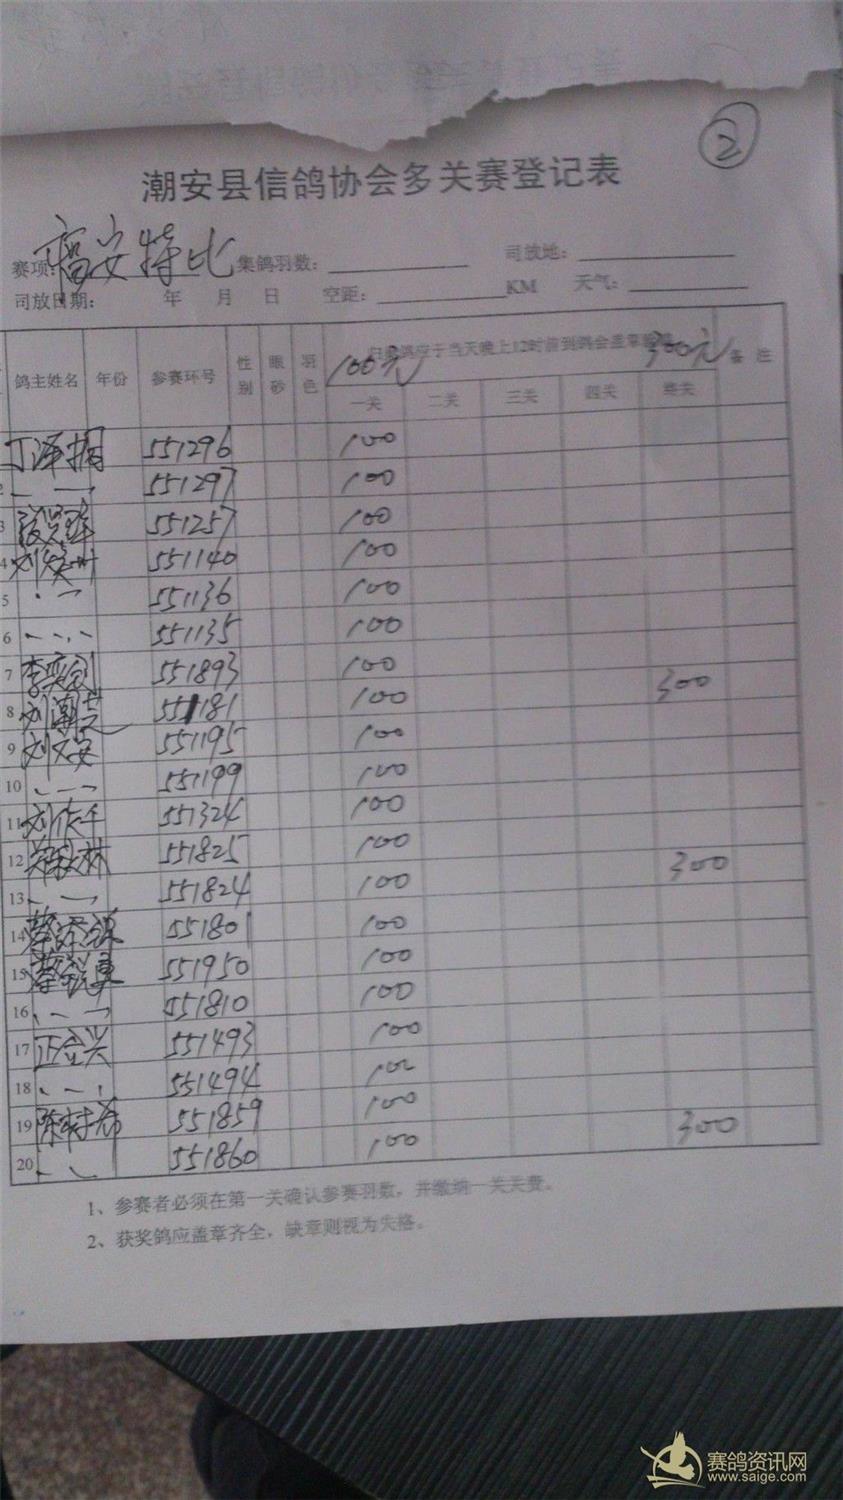 ②
潮安县信鸽协会多关赛登记表
赛项: 福安特比 集鸽羽数: 司放地:
司放日期: 年 月 日 空距: KM 天气:
鸽主姓名 年份 参赛环号 性别 眼砂 羽色 归巢鸽应于当天晚上12时前到鸽会盖章 备注
100元 300元
一关 二关 三关 四关 终关
551296 100
2 551297 100
3 551257 100
4 551140 100
5 551136 100
6 551135 100
7 李奕创 551893 100 300
8 刘潮芝 551181 100
9 刘不安 551195 100
10 551199 100
11 刘作午 551324 100
12 551825 100 300
13 551824 100
14 551801 100
15 551950 100
16 551810 100
17 551493 100
18 551494 100
19 551859 100 300
20 551860 100
1、参赛者必须在第一关确认参赛羽数，并缴纳一关关费。
2、获奖鸽应盖章齐全，缺章则视为失格。
赛鸽资讯网
www.saige.com